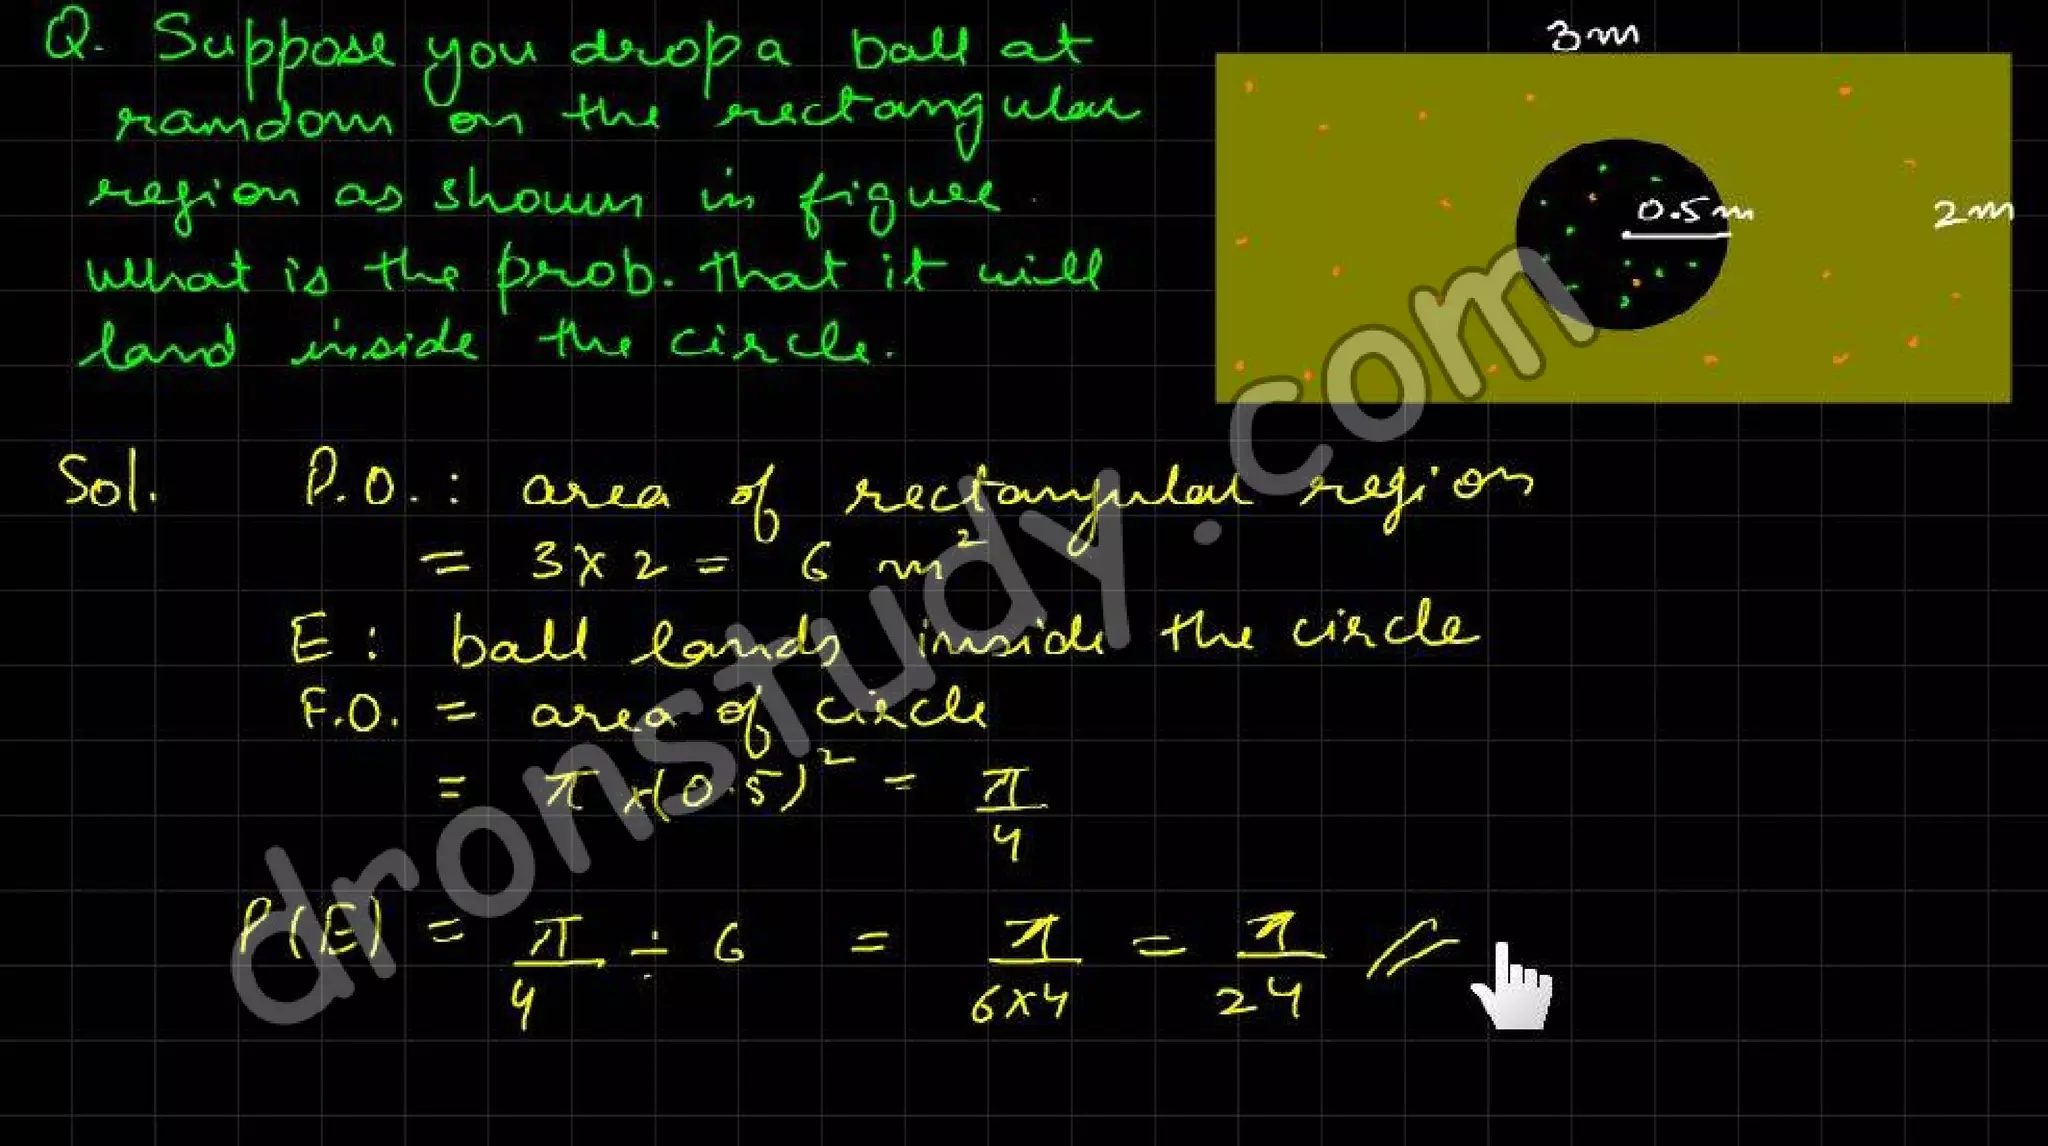 Q. Suppose you drop a ball at
random on the rectangular
region as shown in figure.
What is the prob. that it will
land inside the circle.
3m
0.5m
2m
Sol. P.O. : area of rectangular region
= 3 x 2 = 6 m²
E : ball lands inside the circle
F.O. = area of circle
= π x (0.5)² = π/4
P(E) = π/4 ÷ 6 = π/6x4 = π/24
dronstudy.com